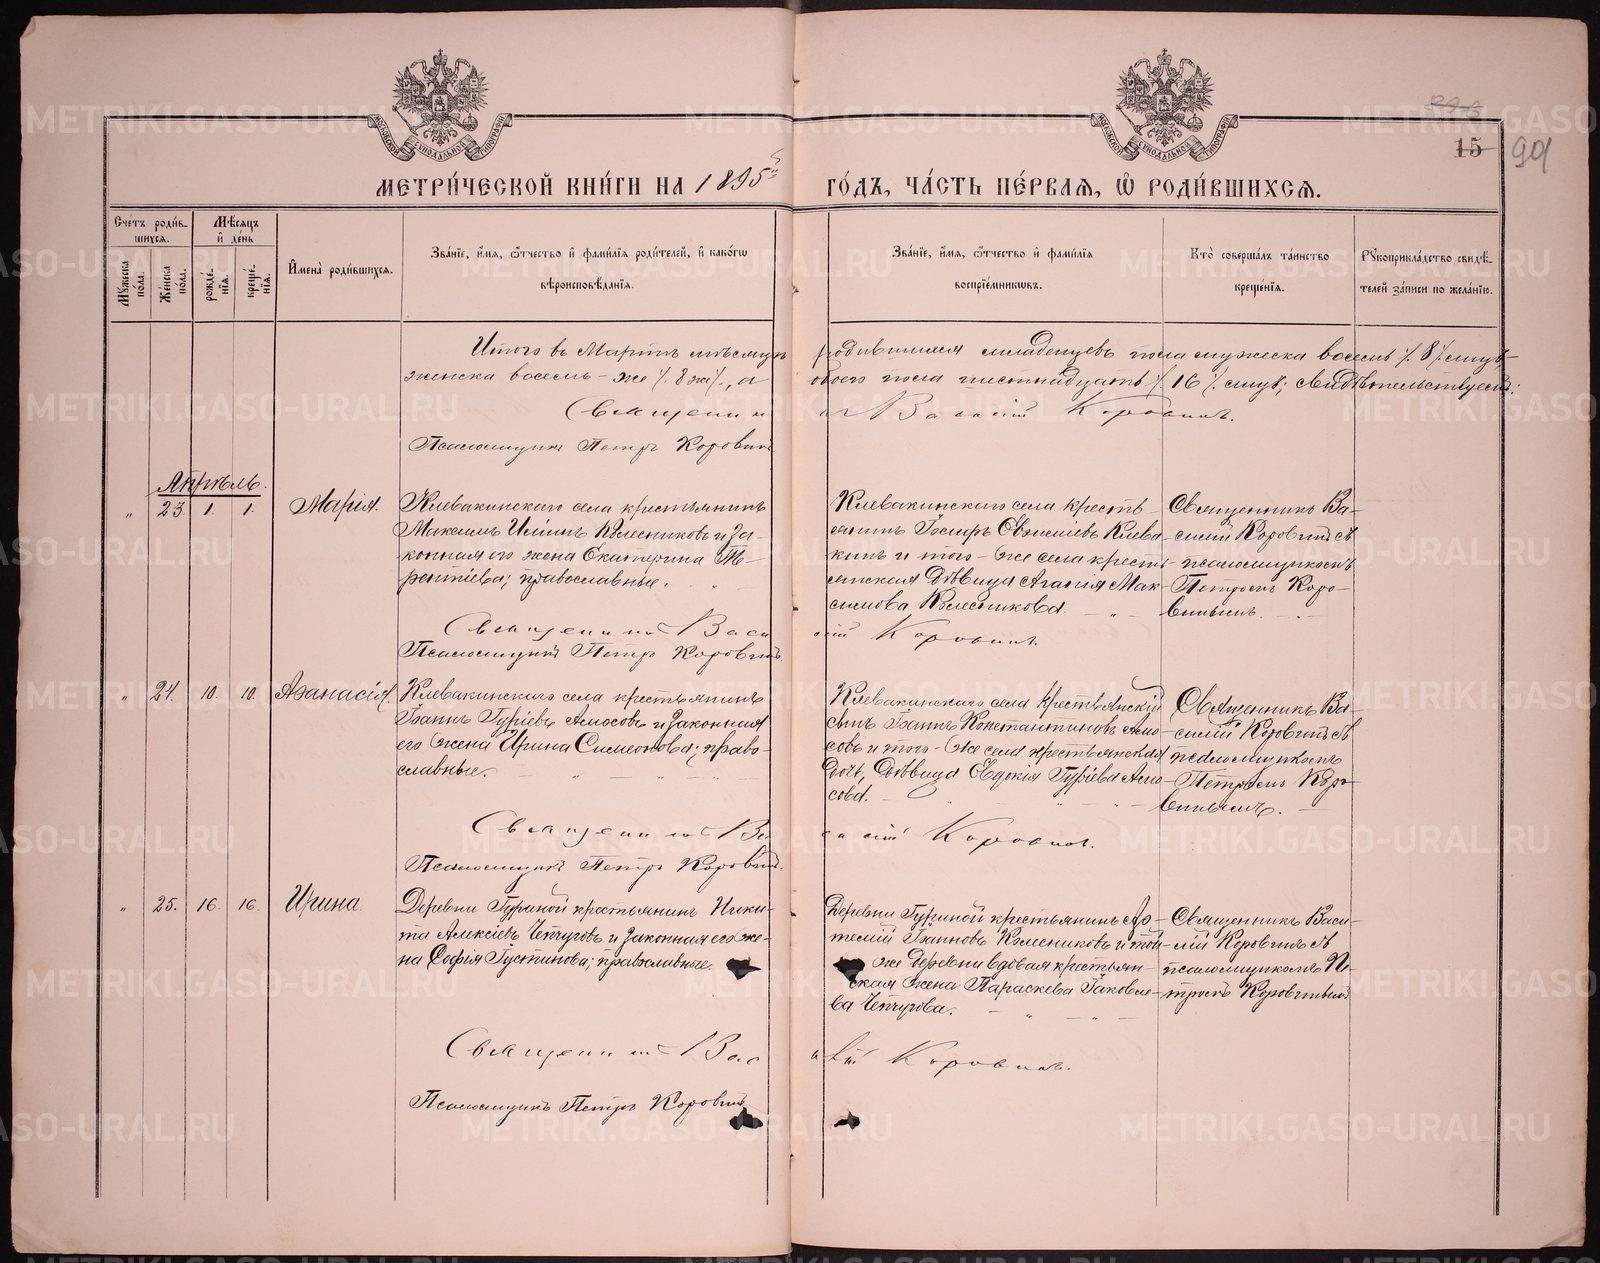 МЕТРИ́ЧЕСКОЙ КНИ́ГИ НА 1895й ГО́ДЪ, ЧА́СТЬ ПЕ́РВАѦ, Ѿ РОДИ́ВШИХСѦ.
МОСКОВСКОЙ СѴНОДАЛЬНОЙ ТИПОГРАФІИ
МОСКОВСКОЙ СѴНОДАЛЬНОЙ ТИПОГРАФІИ
15
901
Счетъ роди́в-
шихсѧ.
Мѣсѧцъ
и҆ де́нь
Мꙋжеска по́ла.
Же́нска по́ла.
рожде́-
нїѧ.
креще́-
нїѧ.
И҆мена̀ роди́вшихсѧ.
Зва́нїе, и҆́мѧ, ѻ҆́тчество и҆ фами́лїѧ роди́телей, и҆ како́гѡ
вѣроисповѣ́данїѧ.
Зва́нїе, и҆́мѧ, ѻ҆́тчество и҆ фами́лїѧ
воспрїе́мникѡвъ.
Кто̀ соверша́лъ та́инство
креще́нїѧ.
Рꙋкоприкла́дство свидѣ́-
телей за́писи по жела́нїю.
Итого въ Мартѣ мѣсяцѣ родившихся младенцевъ пола мужеска восемь /. 8 /. муж-
женска восемь - же /. 8 же /., а обоего пола шестнадцать /. 16 /. сиуъ; свидѣтельствуемъ:
Священникъ Василій Коровинъ.
Псаломщикъ Петръ Коровинъ
Апрѣль.
" 23. 1. 1. Марія.
Клевакинскаго села крестьянинъ
Максимъ Ильинъ Колесниковъ и за-
конная его жена Екатерина Те-
рентіева; православные.
Клевакинскаго села кресть-
янинъ Іосифъ Евгеніевъ Клева-
кинъ и того - же села кресть-
янская дѣвица Агапія Мак-
симова Колесникова.
Священникъ Ва-
силій Коровинъ съ
псаломщикомъ
Петромъ Коро-
винымъ.
Священникъ Василій Коровинъ.
Псаломщикъ Петръ Коровинъ.
" 24. 10. 10. Аѳанасія.
Клевакинскаго села крестьянинъ
Іоаннъ Гуріевъ Амосовъ и законная
его жена Ирина Симеонова; право-
славные.
Клевакинскаго села крестьянскій
сынъ Іоаннъ Константиновъ Амо-
совъ и того - же села крестьянская
дочь, дѣвица Евдокія Гуріева Амо-
сова.
Священникъ Ва-
силій Коровинъ съ
псаломщикомъ
Петромъ Коро-
винымъ.
Священникъ Василій Коровинъ.
Псаломщикъ Петръ Коровинъ.
" 25. 16. 16. Ирина.
Деревни Гуриной крестьянинъ Ники-
та Алексіевъ Чепчуговъ и законная его же-
на Софія Іустинова; православные.
Деревни Гуриной крестьянинъ
Іоанновъ Колесниковъ и той
же деревни вдовая крестьян-
ская жена Параскева Іаковле-
ва Чепчугова.
Священникъ Васи-
лій Коровинъ съ
псаломщикомъ Пе-
тромъ Коровинымъ
Священникъ Василій Коровинъ.
Псаломщикъ Петръ Коровинъ
METRIKI.GASO-URAL.RU